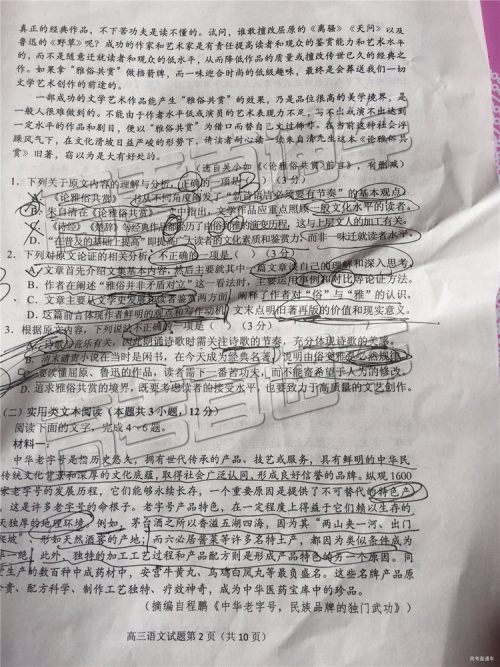 真正的经典作品，不下苦功夫是读不懂的。试问，谁敢擅改屈原的《离骚》《天问》以及
鲁迅的《野草》呢？成功的作家和艺术家是有责任提高读者和观众的鉴赏能力和艺术水平
的，而不是随意迁就读者和观众的低水平，从而降低作品的质量或擅改传世已久的经典之
作。如果拿“雅俗共赏”做挡箭牌，而一味迎合时尚的低级趣味，最终是会葬送我们一切
文学艺术创作的前途的。
一部成功的文学艺术作品能产生“雅俗共赏”的效果，乃是品位很高的美学境界，是
一般人很难做到的。不能由于作者水平低或演员的艺术表现力不足，写不出或演不出达到
一定水平的作品和剧目，便以“雅俗共赏”为借口而替自己文过饰非。在当前这种社会浮
躁风气下，在文化滑坡日益严峻的形势下，请读者耐心读一读朱自清先生这本《论雅俗共
赏》旧著，窃以为是大有好处的。
（选自吴小如《〈论雅俗共赏〉前言》，有删减）
1．下列关于原文内容的理解与分析，正确的一项是（ ）（3分）
A．《论雅俗共赏》一书从不同角度阐发了“新诗语言必须要有节奏”的基本观点。
B．朱自清在《论雅俗共赏》一文中指出，文学作品应重点照顾一般文化水平的读者。
C．《诗经》《楚辞》等经典作品都经历了由俗到雅的演变历程，这与上层文人的加工有关。
D．“在普及的基础上提高”即提高广大读者的文化素质和鉴赏力，而非一味迁就读者水平。
2．下列对原文论证的相关分析，不正确的一项是（ ）（3分）
A．文章首先介绍文集基本内容，然后主要就其中一篇文章谈自己的理解和深入思考。
B．作者在阐述“雅俗并非矛盾对立”这一看法时，主要运用举例和对比等论证方法。
C．文章主要从文学史发展和读者鉴赏两方面，阐释了作者对“俗”与“雅”的认识。
D．这篇前言体现作者鲜明的观点和写作动机，文末点明旧著再版的价值和现实意义。
3．根据原文内容，下列说法不正确的一项是（ ）（3分）
A．诗歌与音乐有关，因此朗诵诗歌时需关注诗歌的节奏，充分体现诗歌的美感。
B．清末谴责小说在当时是闲书，在今天成为经典名著，说明由俗变雅是必然规律。
C．要读懂屈原、鲁迅的作品，读者需下一番苦功夫，而不能寄希望于人为的修改。
D．追求雅俗共赏的境界，既要考虑读者的接受水平，也要致力于高质量的文艺创作。
（二）实用类文本阅读（本题共3小题，12分）
阅读下面的文字，完成4～6题。
材料一：
中华老字号是指历史悠久，拥有世代传承的产品、技艺或服务，具有鲜明的中华民
传统文化背景和深厚的文化底蕴，取得社会广泛认同，形成良好信誉的品牌。纵观1600
家老字号的发展历程，它们能够永续长存，一个重要原因是提供了不可替代的特色产
，这是许多老字号的命根子。老字号产品特色，在一定程度上得益于它们赖以生存的
天独厚的地理环境。例如，茅台酒之所以香溢五湖四海，因为其“两山夹一河、出门
爬坡”，形如天然酒窖的产地；而六必居酱菜等许多名特土产，都因为类似条件成为
一绝。此外，独特的加工工艺过程和产品配方则是形成产品特色的另一个原因。同
生产的数百种中成药材中，安宫牛黄丸、乌鸡白凤丸等最负盛名。这些名牌产品原
贵、配方科学、制作工艺独特、疗效神奇，成为中华医药宝库中的珍品。
（摘编自程鹏《中华老字号，民族品牌的独门武功》）
高三语文试题第2页（共10页）
高考直通车